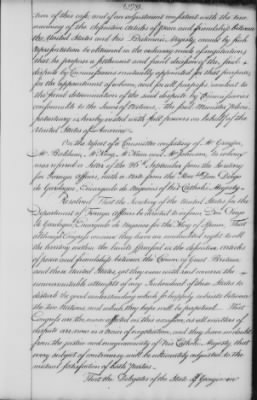 tion of this case, and if an adjustment consistent with the true
meaning of the definitive articles of peace and friendship between
the United States and his Britannic Majesty cannot by such
representation be obtained in the ordinary mode of negotiation
that he propose a settlement and final decision of the said
dispute by Commissioners mutually appointed for that purpose,
for the appointment of whom, and for all purposes incident to
the final determination of the said dispute by Commissioners
conformable to the laws of Nations, the said Minister Pleni-
potentiary is hereby vested with full powers on behalf of the
United States of America
On the report of a Committee consisting of Mr Grayson,
Mr Pettit, Mr King, Mr and Mr Johnson, to whom
was referred a letter of the Septemr from the Secretary
for Foreign affairs, with a note from the Don Diego
de Gardoqui, Encargado de Negocios of his Catholic Majesty
Resolved That the Secretary of the United States for the
Department of Foreign Affairs be directed to inform Don Diego
de Gardoqui, Encargado de Negocios for the King of Spain, That
although Congress conceive they have an undoubted right to all
the territory within the limits specified in the definitive articles
of peace and friendship between the Crown of Great Britain
and these United States, yet they view with real concern the
unwarrantable attempts of any Individuals of these States to
disturb the good understanding which so happily subsists between
the two Nations and which they hope will be perpetual. That
Congress are the more affected on this occasion, as all matters of
dispute are now in a train of negotiation, and they have no doubt
from the justice and magnanimity of his Catholic Majesty, that
every subject of controversy will be ultimately adjusted to the
mutual satisfaction of both parties.
That the Delegates of the State of Georgia are